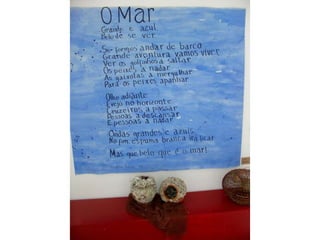 O Mar
Grande e azul
Belo de se ver
Se formos andar de barco
Grande aventura vamos viver
Ver os golfinhos a saltar
Os peixes a nadar
As gaivotas a mergulhar
Para os peixes apanhar
Olho adiante
Vejo no horizonte
Cruzeiros a passar
Pessoas a descansar
E pessoas a nadar
Ondas grandes e azuis
No fim, espuma branca irá ficar
Mas que belo que é o mar!